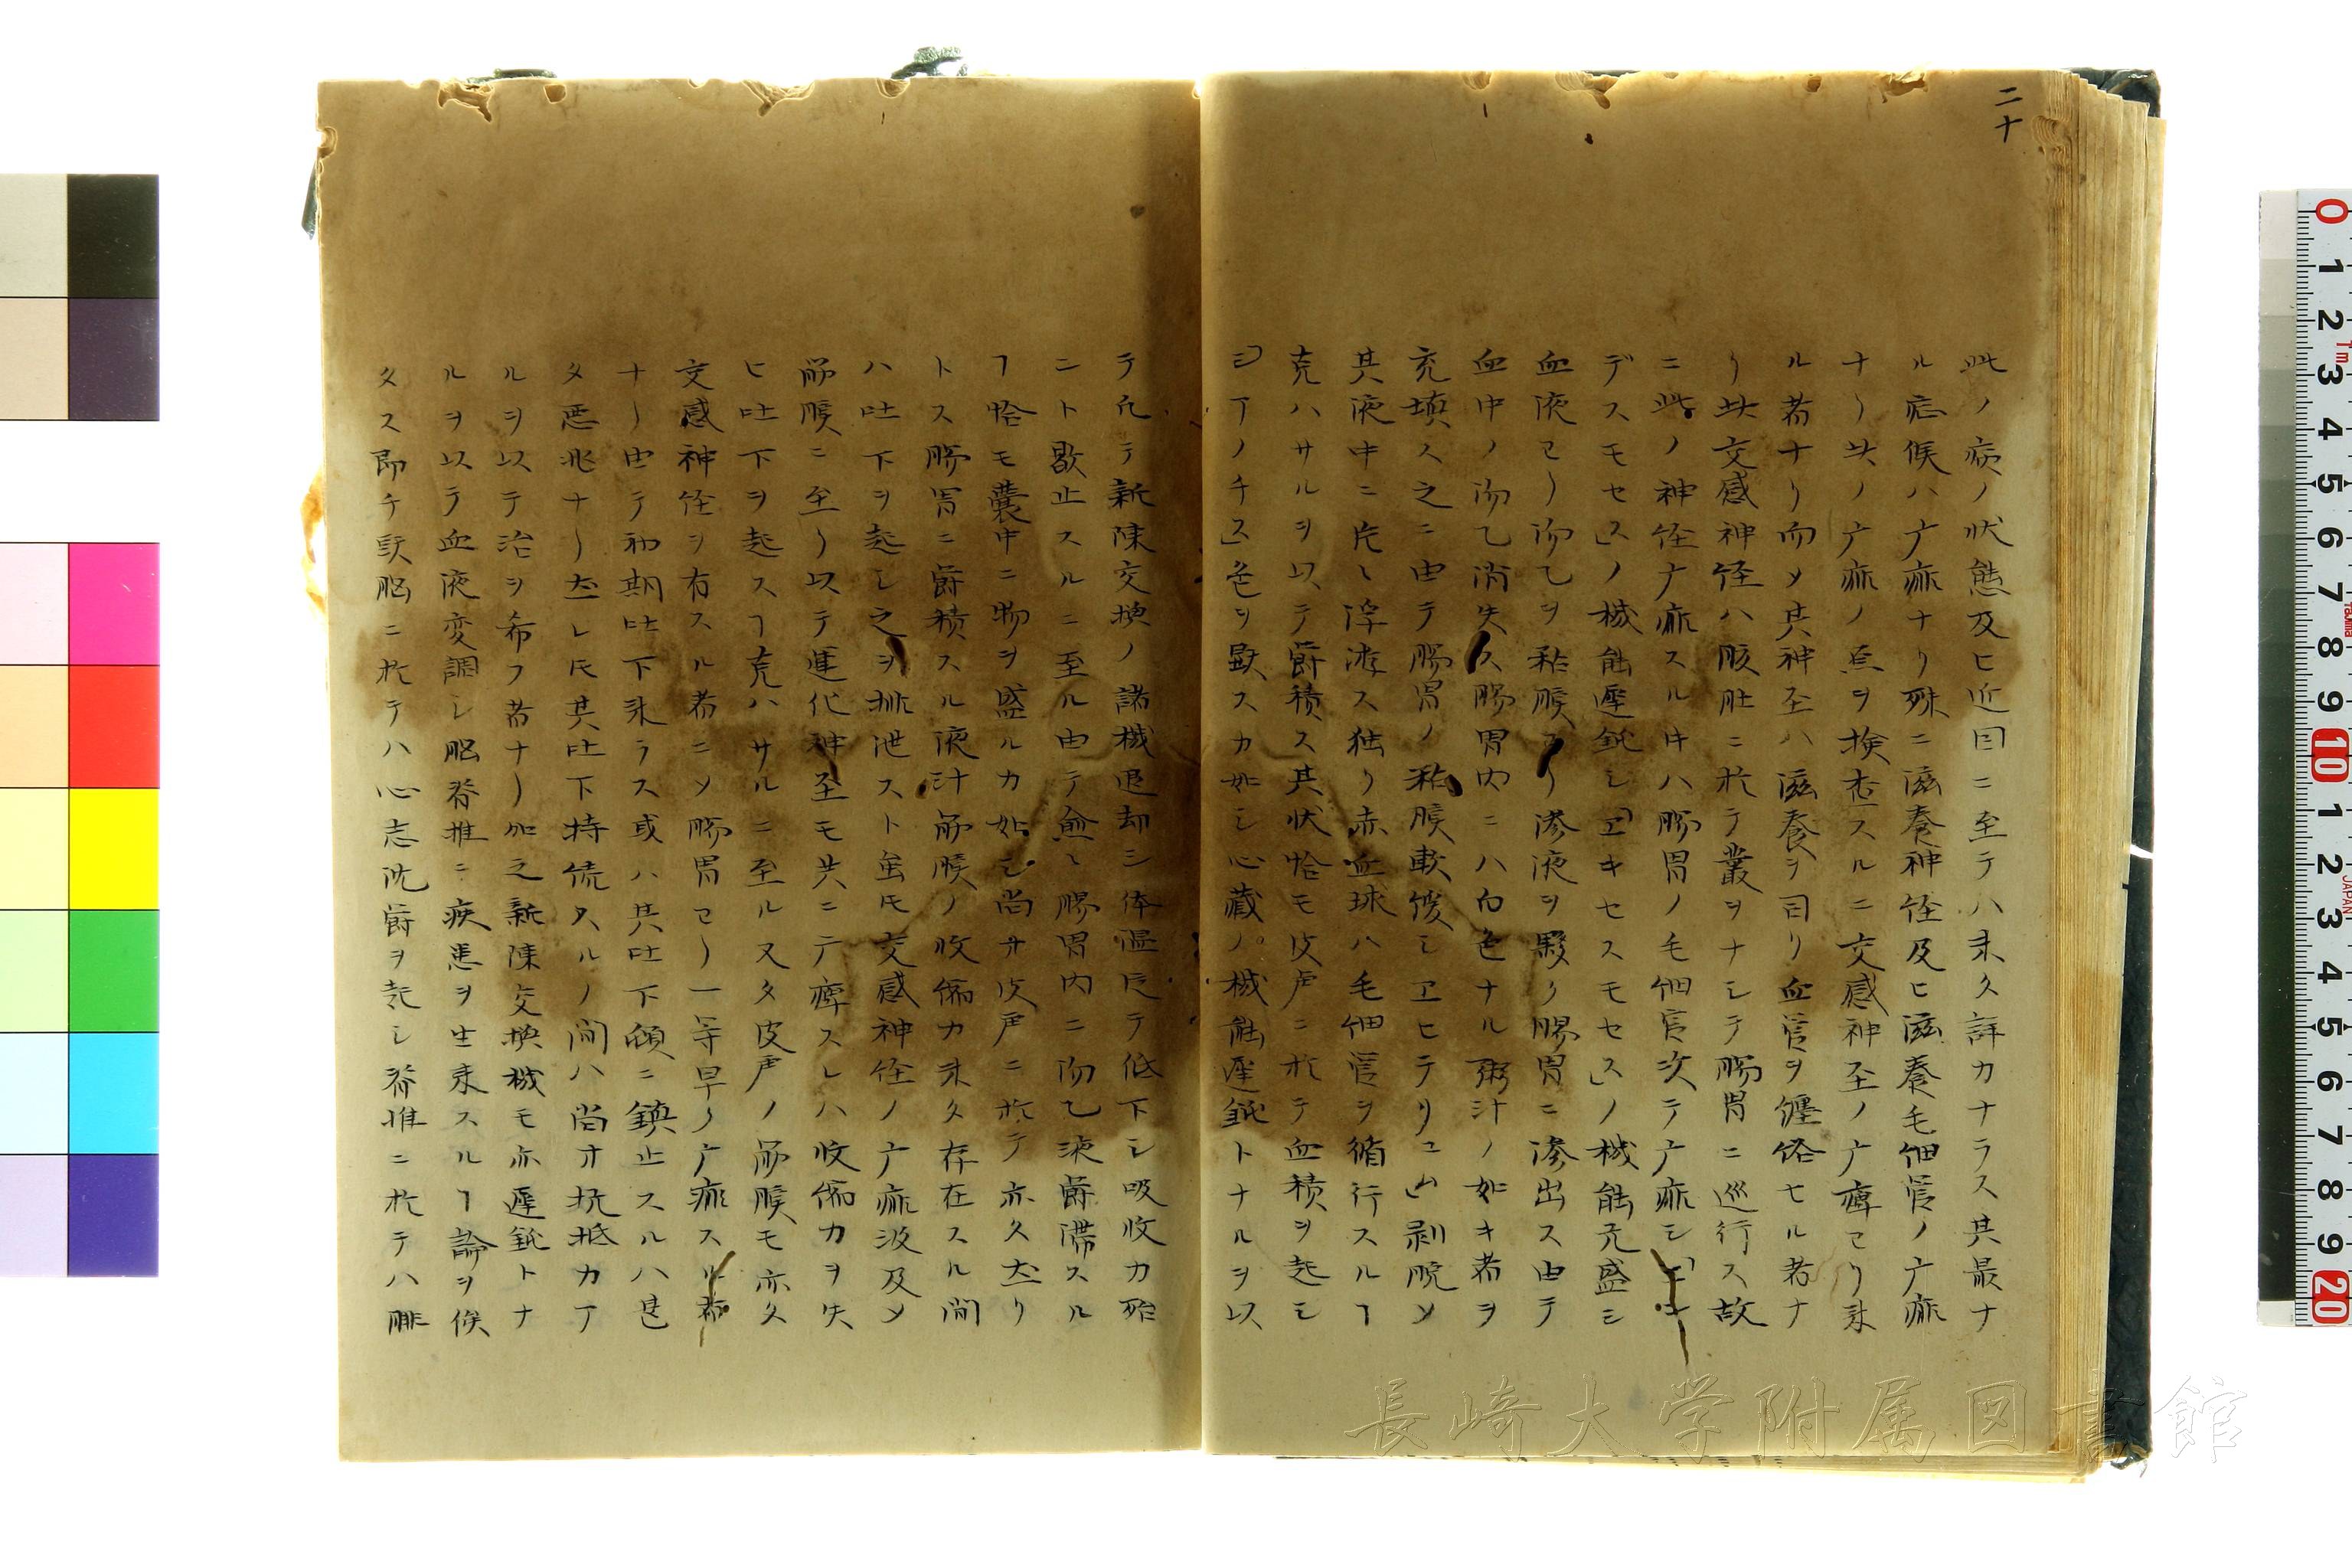 二十
此ノ病ノ状態及ヒ近因ニ至テハ未タ詳カナラス其最ナ
ル症候ハ广痲ナリ殊ニ滋養神経及ヒ滋養毛細管ノ广痲
ナリ此ノ广痲ノ点ヲ検査スルニ交感神至ノ广痺ヨリ来
ル者ナリ而メ其神至ハ滋養ヲ司リ血管ヲ纏絡セル者ナ
リ此交感神経ハ腹肚ニ於テ叢ヲナシテ腸胃ニ巡行ス故
ニ此ノ神経广痲スル寸ハ腸胃ノ毛細管次テ广痲シ「エキ
デスモセス」ノ機能遅鈍シ「エキセスモセス」ノ機能亢盛シ
血液ヨリ沕乙ヲ粘膜ヨリ滲液ヲ醸ク腸胃ニ滲出ス由テ
血中ノ沕乙消失ス腸胃内ニハ白色ナル粥汁ノ如キ者ヲ
充填ス之ニ由テ腸胃ノ粘膜軟緩シヱヒテリユム」剥脱ソ
其液中ニ片々浮游ス独リ赤血球ハ毛細管ヲ循行スルヿ
克ハサルヲ以テ欝積ス其状恰モ皮膚ニ於テ血積ヲ起シ
シアノチス」色ヲ顕スカ如シ心臓ノ機能遅鈍トナルヲ以
テ凢テ新陳交換ノ諸機退却シ体温反テ低下シ吸收力殆
ント歇止スルニ至ル由テ愈々腸胃内ニ沕乙液欝滞スル
ヿ恰モ嚢中ニ物ヲ盛ルカ如シ尚オ皮膚ニ於テ亦タ然リ
トス腸胃ニ欝積スル液汁筋膜ノ收縮力未タ存在スル間
ハ吐下ヲ起シ之ヲ排泄スト虽𪜈交感神経ノ广痲波及メ
筋膜ニ至リ以テ運化神至モ共ニ广痺スレハ收縮力ヲ失
ヒ吐下ヲ起スヿ克ハサルニ至ル又タ皮膚ノ筋膜モ亦タ
交感神経ヲ有スル者ニメ腸胃ヨリ一等早ク广痲スル者
ナリ由テ初期吐下来ラス或ハ其吐下頓ニ鎮止スルハ甚
タ悪兆ナリ然レ𪜈其吐下持続スルノ間ハ尚オ抗抵力ア
ルヲ以テ治ヲ希フ者ナリ加之新陳交換機モ亦遅鈍トナ
ルヲ以テ血液変調シ脳脊椎ニ疾患ヲ生来スルヿ論ヲ俟
タス即チ頭脳ニ於テハ心志沈欝ヲ起シ脊椎ニ於テハ腓
長崎大学附属図書館